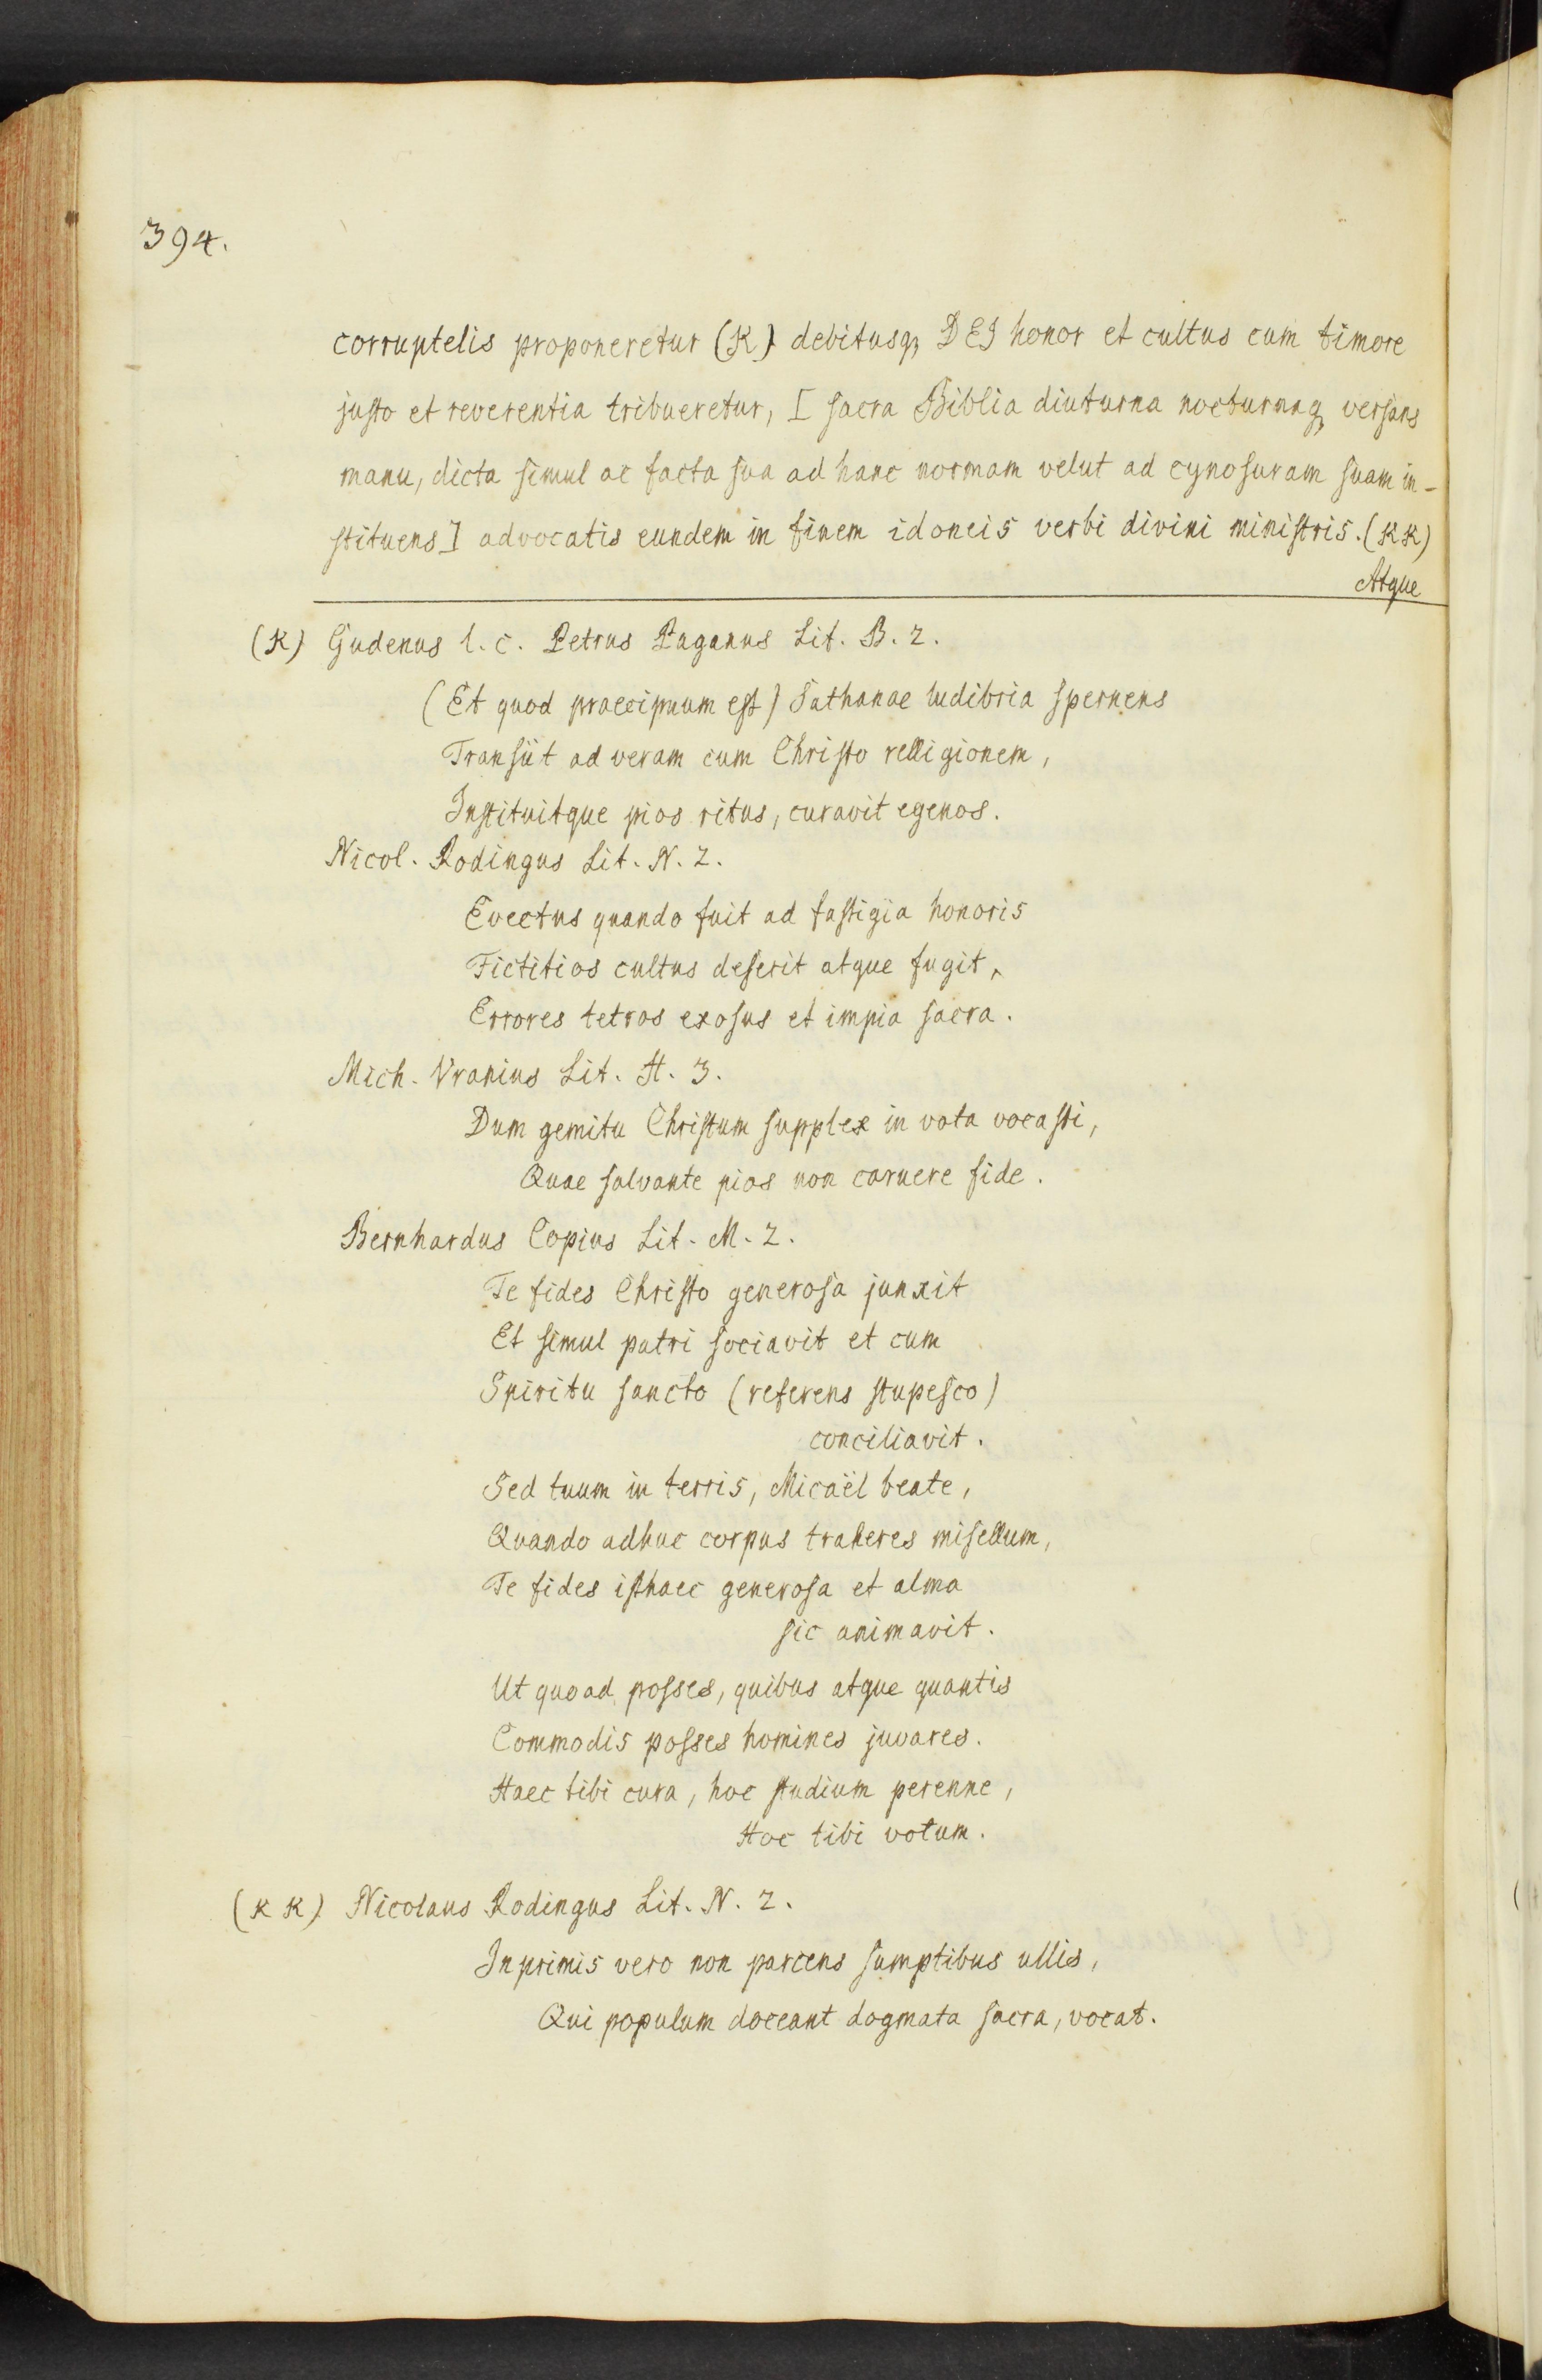 394.
corruptelis proponeretur (K) debitusq, DEI honor et cultus cum timore
justo et reverentia tribueretur, [ sacra Biblia diuturna nocturnaq, versans
manu, dicta simul ac facta sua ad hanc normam velut ad cynosuram suam in-
stituens] advocatis eundem in finem idoneis verbi divini ministris. (KK)
Atque
(K) Gudenus l. c. Petrus Paganus Lit. B. 2.
(Et quod praecipuum est) Sathanae ludibria spernens
Transiit ad veram cum Christo relligionem,
Instituitque pios ritus, curavit egenos.
Nicol. Rodingus Lit. N. 2.
Evectus quando fuit ad fastigia honoris
Fictitios cultus deserit atque fugit,
Errores tetros exosus et impia sacra.
Mich. Vranius Lit. H. 3.
Dum gemitu Christum supplex in vota vocasti,
Quae salvante pios non caruere fide.
Bernhardus Copius Lit. M. 2.
Te fides Christo generosa junxit
Et simul patri sociavit et cum
Spiritu sancto (referens stupesco)
conciliavit.
Sed tuum in terris, Micaël beate,
Quando adhuc corpus traheres misellum,
Te fides isthaec generosa et alma
sic animavit.
Ut quoad posses, quibus atque quantis
Commodis posses homines juvares.
Haec tibi cura, hoc studium perenne,
Hoc tibi votum.
(KK) Nicolaus Rodingus Lit. N. 2.
Inprimis vero non parcens sumptibus ullis,
Qui populum doceant dogmata sacra, vocat.